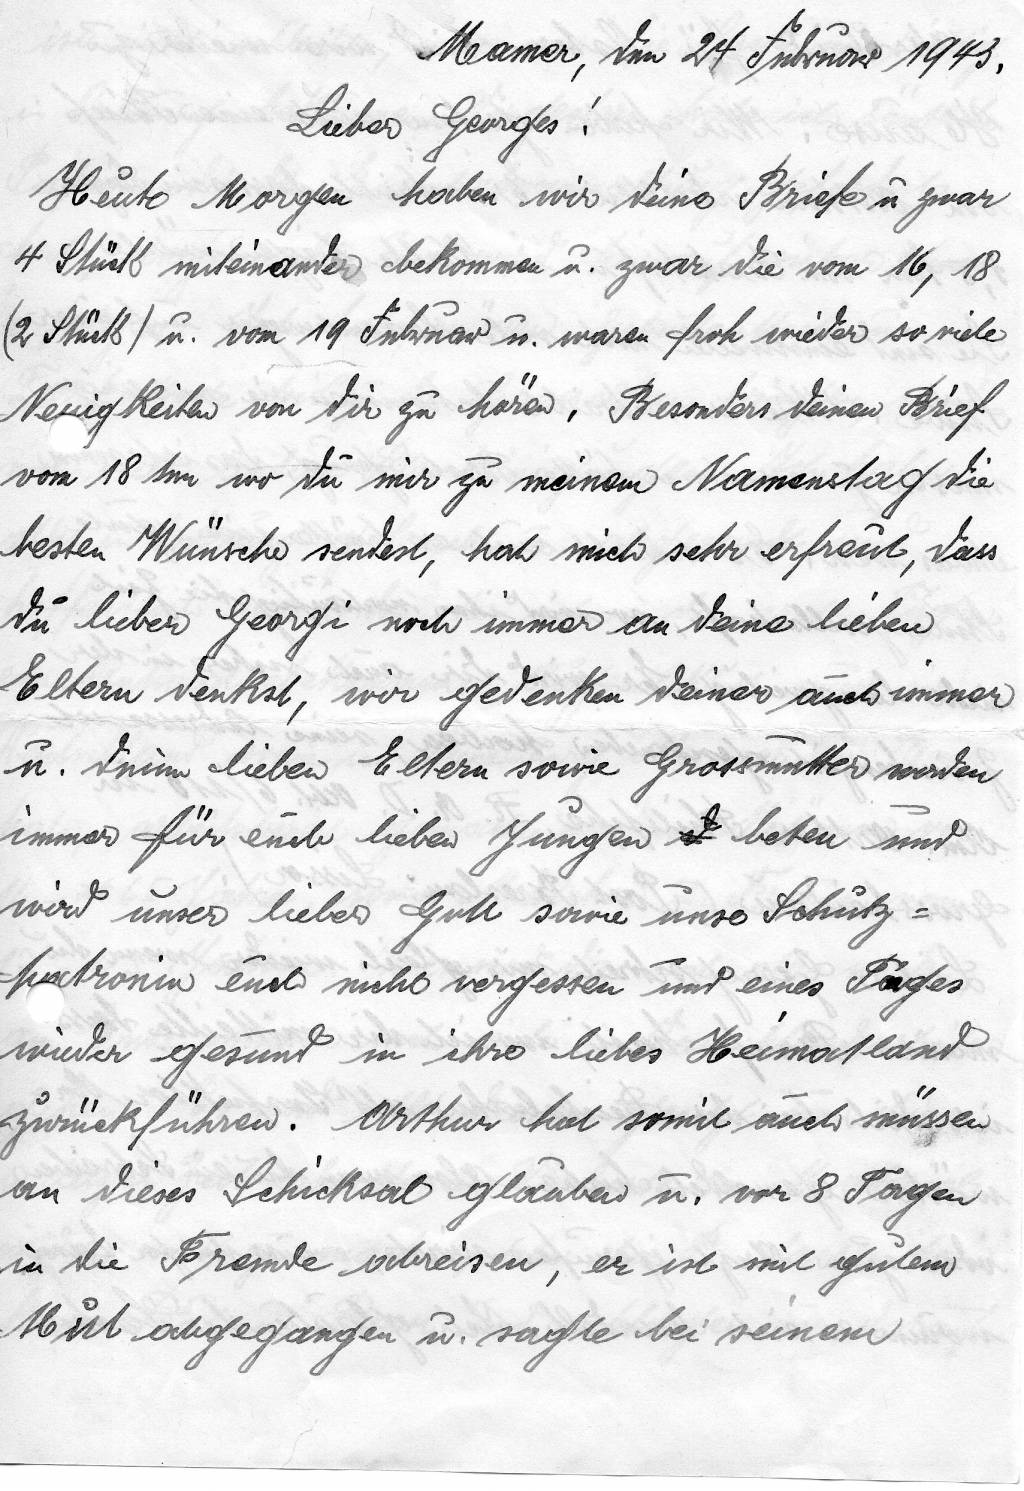 Mamer, den 24 Februar 1943.
Lieber Georges!
Heute Morgen haben wir deine Briefe u zwar
4 Stück miteinander bekommen u. zwar die vom 16, 18
(2 Stück) u. vom 19 Februar u. waren froh wieder so viele
Neuigkeiten von dir zu hören, Besonders deinen Brief
vom 18 ten wo du mir zu meinem Namenstag die
besten Wünsche sendest, hat mich sehr erfreut, dass
du lieber Georgi noch immer an deine lieben
Eltern denkst, wir gedenken deiner auch immer
u. deine lieben Eltern sowie Grossmutter werden
immer für euch lieben Jungen beten und
wird unser lieber Gott sowie unse Schutz=
patronin euch nicht vergessen und eines Tages
wieder gesund in ihre liebes Heimatland
zurückführen. Arthur hat somit auch müssen
an dieses Schicksal glauben u. vor 8 Tagen
in die Fremde abreisen, er ist mit gutem
Mut abgegangen u. sagte bei seinem